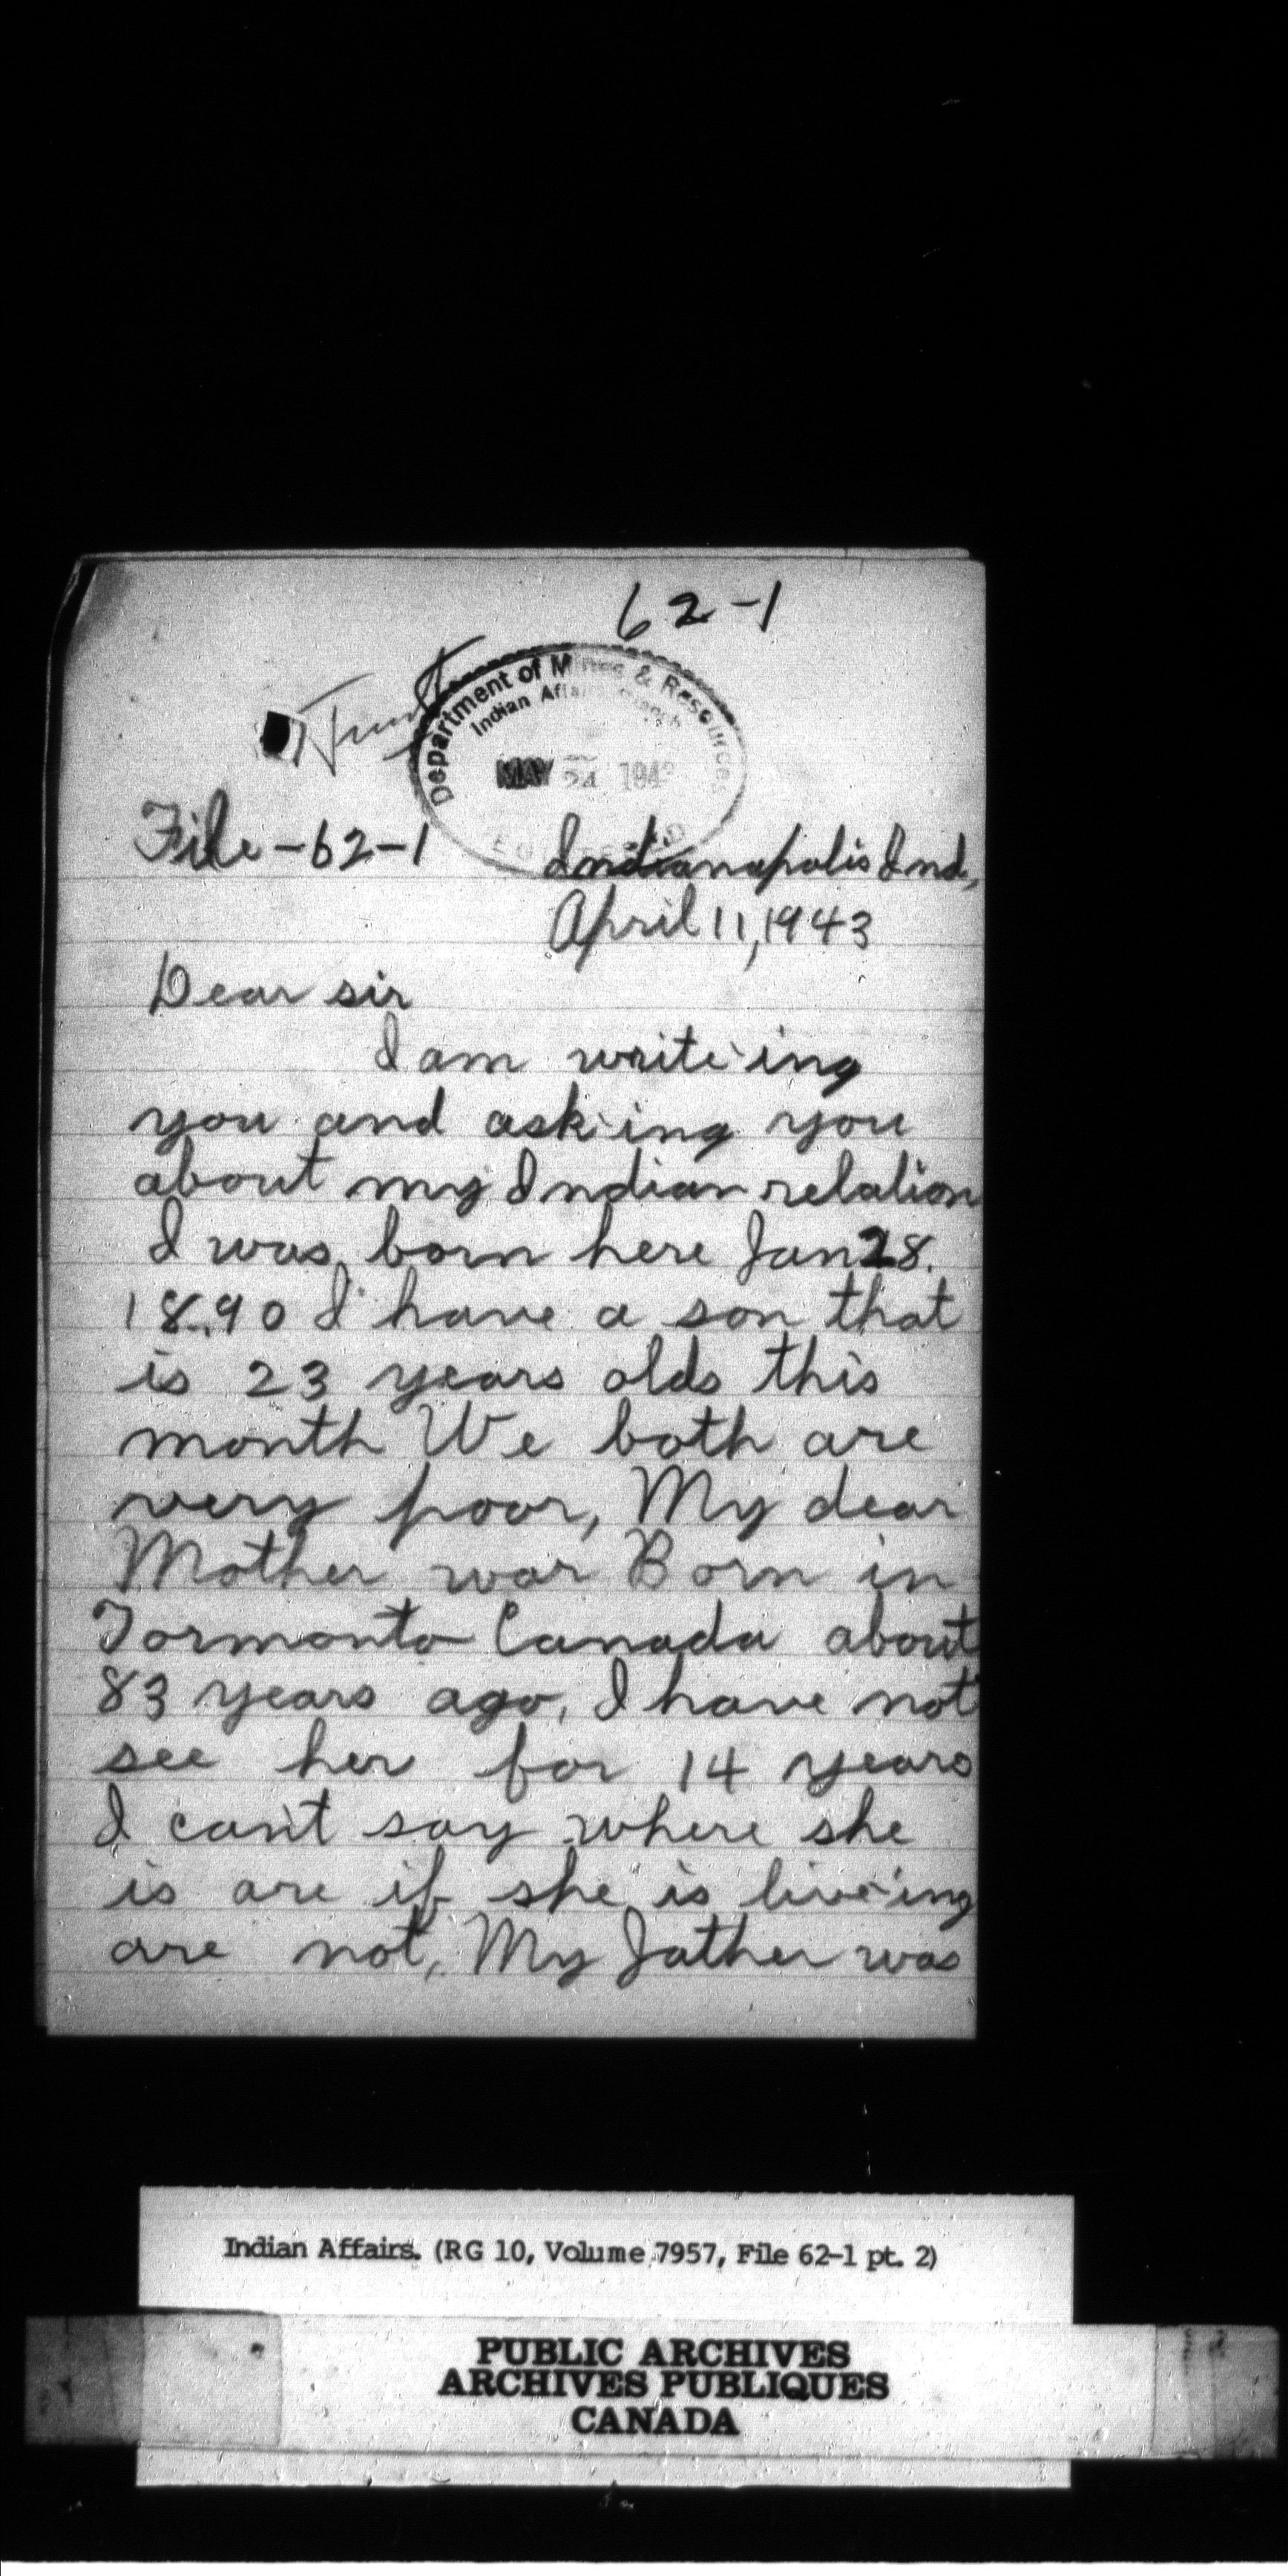 62-1
Trust
Department of Mines & Resources
Indian Affairs Branch
MAY 24 1943
File-62-1
Indianapolis Ind,
April 11, 1943
Dear sir
I am write-ing
you and ask-ing you
about my Indian relation
I was born here Jan 28.
1890 I have a son that
is 23 years olds this
month We both are
very poor, My dear
Mother war Born in
Tormonto Canada about
83 years ago, I have not
see her for 14 years
I can't say where she
is are if she is live-ing
are not, My Father was
Indian Affairs. (RG 10, Volume 7957, File 62-1 pt. 2)
PUBLIC ARCHIVES
ARCHIVES PUBLIQUES
CANADA